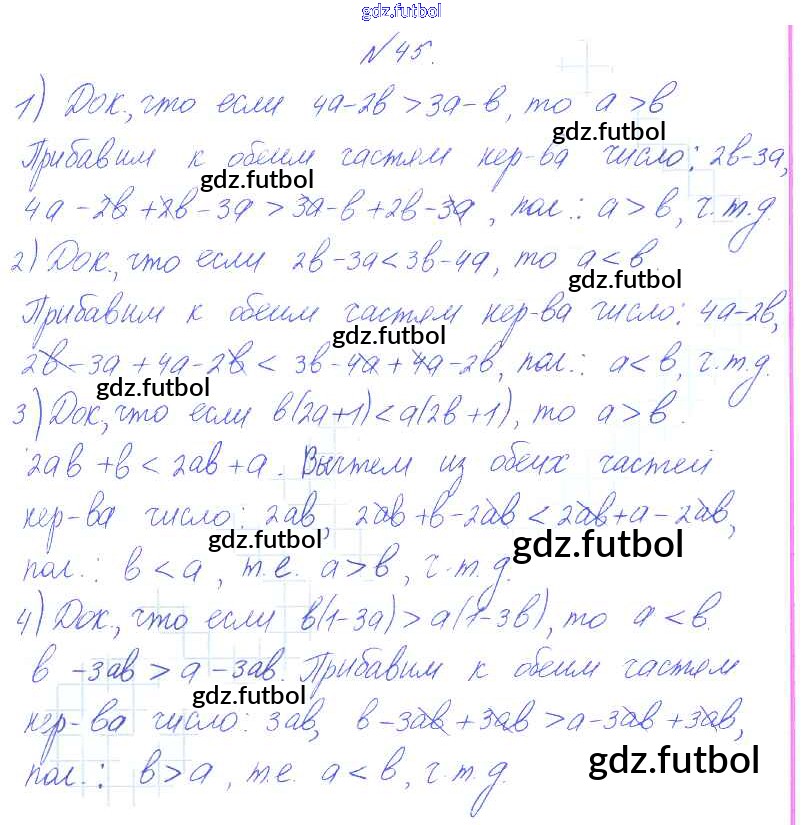 gdz.futbol
№45.
1) Док., что если 4a-2b>3a-b, то a>b
gdz.futbol
Прибавим к обеим частям нер-ва число: 2b-3a,
gdz.futbol
4a-2b+2b-3a>3a-b+2b-3a, пол.: a>b, ч.т.д.
2) Док., что если 2b-3a<3b-4a, то a<b.
gdz.futbol
Прибавим к обеим частям нер-ва число: 4a-2b,
gdz.futbol
2b-3a+4a-2b<3b-4a+4a-2b, пол.: a<b, ч.т.д.
gdz.futbol
3) Док., что если b(2a+1)<a(2b+1), то a>b.
2ab+b<2ab+a. Вычтем из обеих частей
нер-ва число: 2ab, 2ab+b-2ab<2ab+a-2ab,
gdz.futbol gdz.futbol
пол.: b<a, т.е. a>b, ч.т.д.
4) Док., что если b(1-3a)>a(1-3b), то a<b.
b-3ab>a-3ab. Прибавим к обеим частям
gdz.futbol
нер-ва число: 3ab, b-3ab+3ab>a-3ab+3ab,
gdz.futbol
пол.: b>a, т.е. a<b, ч.т.д.